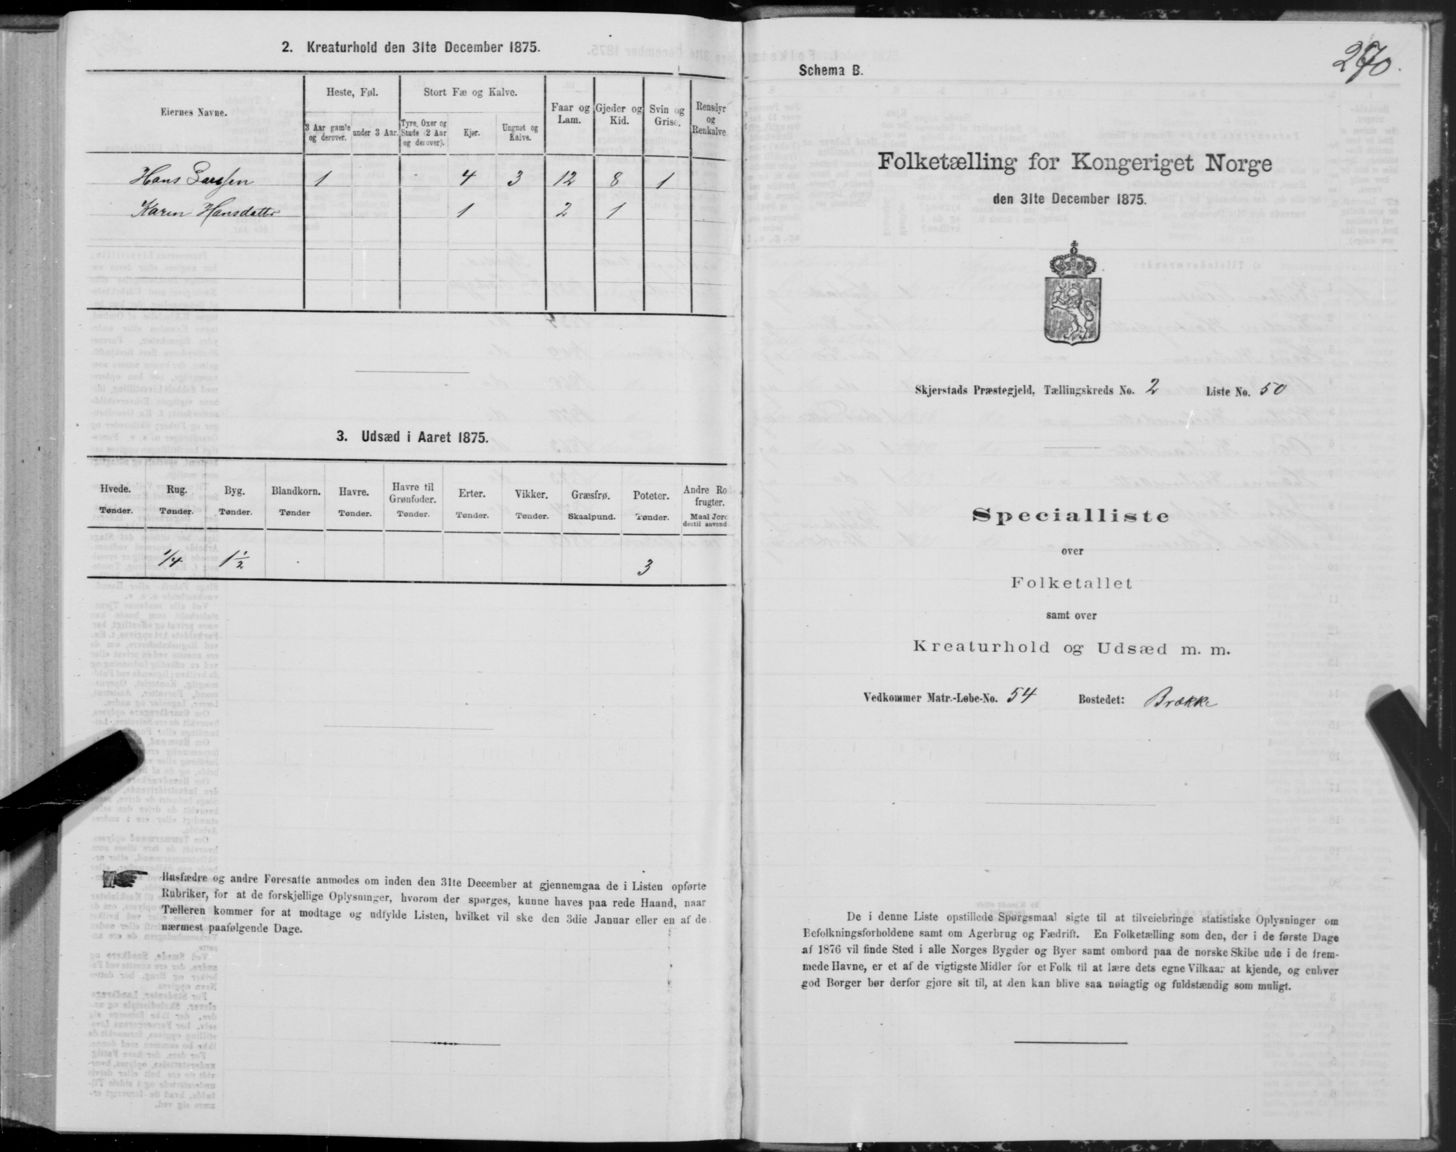 2. Kreaturhold den 31te December 1875.
Eiernes Navne.
Heste, Føl.
Stort Fæ og Kalve.
Faar og Lam.
Gjeder og Kid.
Svin og Grise.
Rensdyr og Renkalve
3 Aar gam's og derover.
under 3 Aar.
Tyre, Oxer og Stude (2 Aar og derover).
Kjør.
Ungnøt og Kalve.
Hans Larssen 1 4 3 12 8 1
Karen Hansdatter 1 2 1
3. Udsæd i Aaret 1875.
Hvede. Rug. Byg. Blandkorn. Havre. Havre til Grønfoder. Erter. Vikker. Græsfrø. Poteter. Andre Ro frugter.
Tønder. Tønder. Tønder. Tønder Tønder. Tønder. Tønder. Tønder. Skaalpund. Tønder. Maal Jor dertil anvend
1/4 1 1/2 3
Husfædre og andre Foresatte anmodes om inden den 31te December at gjennemgaa de i Listen opførte
Rubriker, for at de forskjellige Oplysninger, hvorom der spørges, kunne haves paa rede Haand, naar
Tælleren kommer for at modtage og udfylde Listen, hvilket vil ske den 3die Januar eller en af de
nærmest paafølgende Dage.
270.
Schema B.
Folketælling for Kongeriget Norge
den 31te December 1875.
Skjerstads Præstegjeld, Tællingskreds No. 2 Liste No. 50
Specialliste
over
Folketallet
samt over
Kreaturhold og Udsæd m. m.
Vedkommer Matr.-Løbe-No. 54 Bostedet: Brække
De i denne Liste opstillede Spørgsmaal sigte til at tilveiebringe statistiske Oplysninger om
Befolkningsforholdene samt om Agerbrug og Fædrift. En Folketælling som den, der i de første Dage
af 1876 vil finde Sted i alle Norges Bygder og Byer samt ombord paa de norske Skibe ude i de frem-
mede Havne, er et af de vigtigste Midler for et Folk til at lære dets egne Vilkaar at kjende, og enhver
god Borger bør derfor gjøre sit til, at den kan blive saa nøiagtig og fuldstændig som muligt.